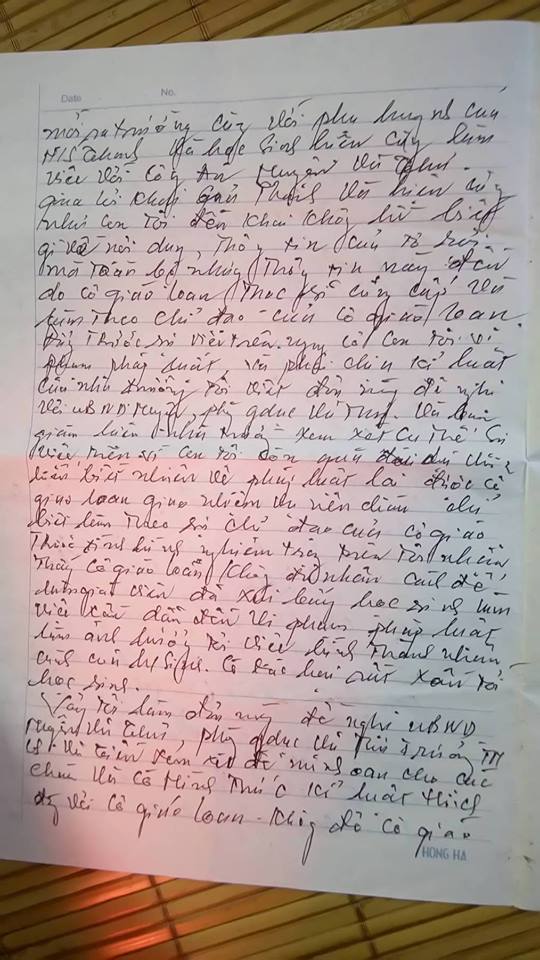 Date No.
mời ra trường cùng với phụ huynh của
H/S Thành Và học sinh hiền cũng làm
việc với Công An Huyện Vũ Thư
qua lời khai Thành Và hiền cũng
như con tôi đều khai không hề biết
gì về nội dung, Thông tin của tờ rơi
mà toàn bộ những Thông tin này đều
do cô giáo loan Trực tiếp cung cấp Và
làm Theo chỉ đạo của cô giáo loan.
Đứng Trước sự việc trên nguy cơ con tôi Vi
phạm pháp luật, và phải chịu kỉ luật
của nhà trường tôi viết đơn này đề nghị
Với UBND Huyện, phòng gduc Vũ Thư. Và ban
giám hiệu nhà trường xem xét cụ Thể Sự
Việc trên Vì con tôi còn quá
biết nhận về pháp luật lại được cô
giáo loan giao nhiệm vụ nên chỉ
biết làm Theo sự chỉ đạo của cô giáo
Trước tình hình nghiêm trọng trên Tôi nhận
Thấy cô giáo loan không đủ nhân cách để
đứng giáo viên đã xúi bẩy học sinh làm
việc xấu dẫn đến Vi phạm pháp luật
làm ảnh hưởng tới việc hình Thành nhân
cách của h/sinh. Có tác hại rất xấu tới
học sinh.
Vậy tôi làm đơn này đề nghị UBND
Huyện Vũ Thư, phòng gduc Vũ Thư Trường TH
CS Vũ tiến xem xét để minh oan cho các
cháu Và Có Hình Thức kỉ luật thích
đg với cô giáo loan - không để cô giáo
HONG HA